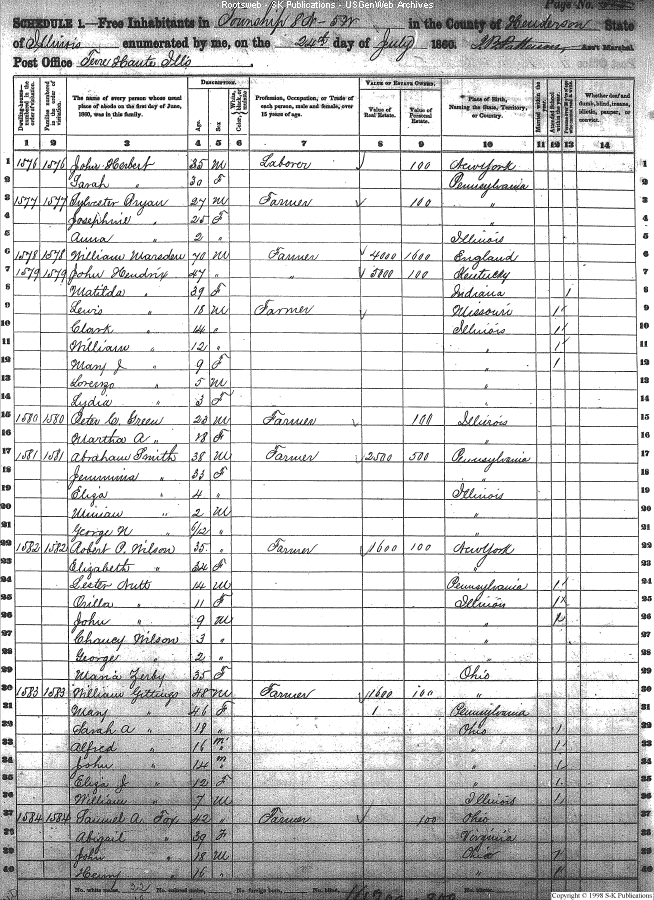 Rootsweb - S-K Publications - USGenWeb Archives
Page No.
SCHEDULE 1.—Free Inhabitants in Township 8 N - 5 W in the County of Henderson State
of Illinois enumerated by me, on the 24th day of July 1860. Ass't Marshal
Post Office Terre Haute Ills
Dwelling-houses numbered in the order of visitation. Families numbered in the order of visitation. The name of every person whose usual place of abode on the first day of June, 1860, was in this family. DESCRIPTION. Age. Sex. Color, Profession, Occupation, or Trade of each person, male and female, over 15 years of age. VALUE OF ESTATE OWNED. Value of Real Estate. Value of Personal Estate. Place of Birth, Naming the State, Territory, or Country. Married within the year. Attended School within the year. Whether deaf and dumb, blind, insane, idiotic, pauper, or convict.
1 2 3 4 5 6 7 8 9 10 11 12 13 14
1 1576 1576 John Herbert 35 M Laborer 100 New York 1
2 Sarah " 30 F Pennsylvania 2
3 1577 1577 Sylvester Bryan 27 M Farmer 100 " 3
4 Josephine " 25 F " 4
5 Anna " 2 " Illinois 5
6 1578 1578 William Marsden 70 M Farmer 4000 1600 England 6
7 1579 1579 John Hendrix 47 " " 5800 100 Kentucky 7
8 Matilda " 39 F Indiana 1 8
9 Lewis " 18 M Farmer Missouri 1 9
10 Clark " 14 " Illinois 1 10
11 William " 12 " " 1 11
12 Mary J " 9 F " 1 12
13 Lorenzo " 5 M " 13
14 Lydia " 3 F " 14
15 1580 1580 Peter C. Green 23 M Farmer 100 Illinois 15
16 Martha A " 18 F " 16
17 1581 1581 Abraham Smith 38 M Farmer 2500 500 Pennsylvania 17
18 Jemmima " 33 F " 18
19 Eliza " 4 " Illinois 19
20 " 2 M " 20
21 George W " 6/12 " " 21
22 1582 1582 Robert P. Wilson 35 " Farmer 1600 100 New York 22
23 Elizabeth " 34 F " 23
24 Lester Nutt 14 M Pennsylvania 1 24
25 Orilla " 11 F Illinois 1 25
26 John " 9 M " 1 26
27 Chaucy Wilson 3 " " 27
28 George " 2 " " 28
29 Maria Zerby 35 F Ohio 29
30 1583 1583 William Gittings 48 M Farmer 1600 100 " 30
31 Mary " 46 F Pennsylvania 31
32 Sarah A " 18 " Ohio 1 32
33 Alfred " 16 m " 1 33
34 John " 14 m " 1 34
35 Eliza J " 12 F " 1 35
36 William " 7 M Illinois 1 36
37 1584 1584 Samuel A. Fox 42 " Farmer 100 Ohio 37
38 Abigail " 39 F Virginia 38
39 John " 18 M Ohio 1 39
40 Henry " 16 " " 1 40
No. white males, No. colored males, No. foreign born, No. blind,
Copyright © 1998 S-K Publications